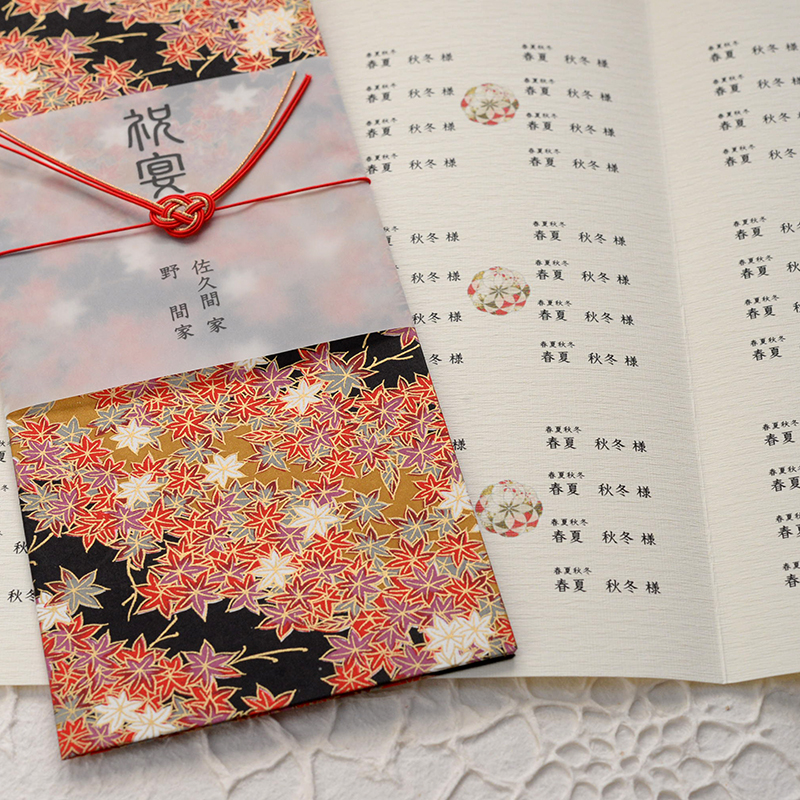 祝宴
佐久間家
野間家
春夏秋冬
春夏 秋冬 様
春夏秋冬
春夏 秋冬 様
春夏秋冬
春夏 秋冬 様
春夏秋冬
春夏 秋冬 様
秋冬 様
秋冬 様
秋冬 様
秋冬 様
様
秋
秋冬
春夏秋冬
春夏 秋冬 様
春夏秋冬
春夏 秋冬 様
春夏秋冬
春夏 秋冬 様
春夏秋冬
春夏 秋冬 様
春夏秋冬
春夏 秋冬 様
春夏秋冬
春夏 秋冬 様
春夏秋冬
春夏 秋冬 様
春夏秋冬
春夏 秋冬 様
春夏秋冬
春夏 秋冬 様
春夏秋冬
春夏 秋冬 様
春夏秋冬
春夏 秋冬 様
春夏秋冬
春夏 秋冬 様
春夏秋冬
春夏 秋冬 様
春夏秋冬
春夏 秋冬 様
春夏秋冬
春夏 秋冬 様
春夏秋冬
春夏 秋冬 様
春夏秋冬
春夏 秋冬
春夏秋冬
春夏 秋冬
春夏秋冬
春夏 秋
春夏秋冬
春夏 秋
春夏秋冬
春夏
春夏秋冬
春夏
春夏秋冬
春夏
春夏秋冬
春